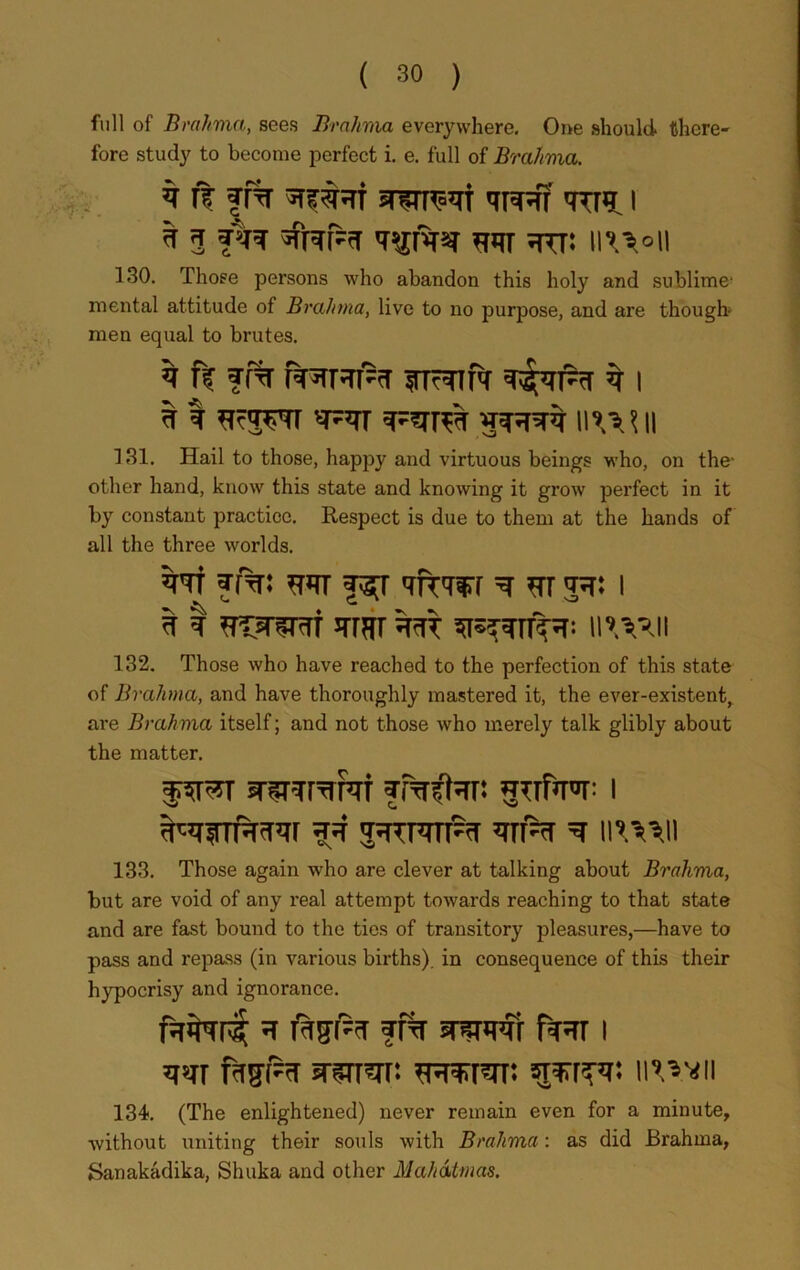 ( 30 )
full of Brahma, sees Brahma everywhere. One should there-
fore study to become perfect i. e. full of Brahma.
ये हि वृत्तिं जहत्येनां ब्रह्माख्यां पावनीं पराम् ।
ते तु वृथैव जीवन्ति पशुभिश्च समा नराः ॥१३०॥
130. Those persons who abandon this holy and sublime
mental attitude of Brahma, live to no purpose, and are though
men equal to brutes.
ये हि वृत्तिं विजानन्ति ज्ञात्वापि वर्द्धयन्ति ये ।
ते वै सत्पुरुषा धन्या वन्द्यास्ते भुवनत्रये ॥१३१॥
131. Hail to those, happy and virtuous beings who, on the
other hand, know this state and knowing it grow perfect in it
by constant practice. Respect is due to them at the hands of
all the three worlds.
येषां वृत्तिः समा वृद्धा परिपक्वा च सा पुनः ।
ते वै सद्ब्रह्मतां प्राप्ता नेतरे शब्दवादिनः ॥१३२॥
132. Those who have reached to the perfection of this state
of Brahma, and have thoroughly mastered it, the ever-existent,
are Brahma itself; and not those who merely talk glibly about
the matter.
कुशला ब्रह्मवार्तायां वृत्तिहीनाः सुरागिणः ।
तेप्यज्ञानितया नूनं पुनरायान्ति यान्ति च ॥१३३॥
133. Those again who are clever at talking about Brahma,
but are void of any real attempt towards reaching to that state
and are fast bound to the ties of transitory pleasures,—have to
pass and repass (in various births). in consequence of this their
hypocrisy and ignorance.
निमेषार्द्धं न तिष्ठन्ति वृत्तिं ब्रह्ममयीं विना ।
यथा तिष्ठन्ति ब्रह्माद्याः सनकाद्याः शुकादयः ॥१३४॥
134. (The enlightened) never remain even for a minute,
without uniting their souls with Brahma : as did Brahma,
Sanakádika, Shuka and other Mahátmas.